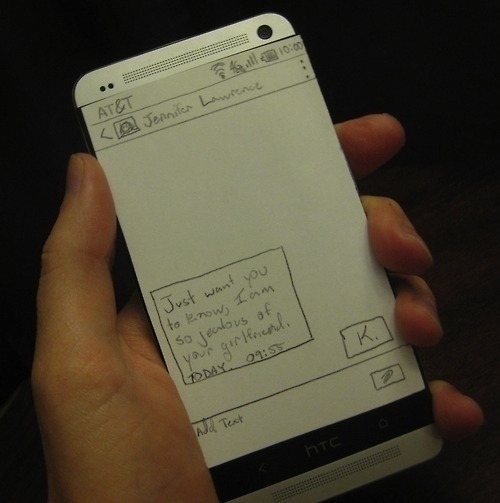 10:00
AT&T
< Jennifer Lawrence
Just want you
to know, I am
so jealous of
your girlfriend.
TODAY 09:55
K.
Add Text
hTC